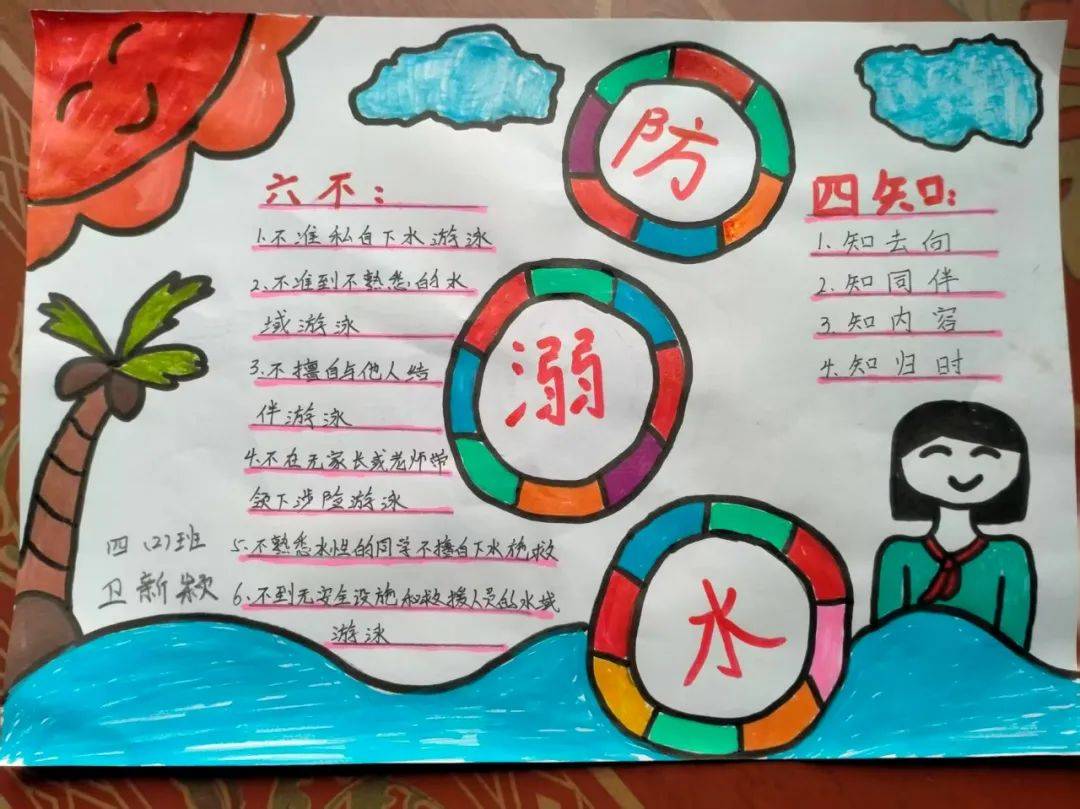 防
溺
水
六不：
1.不准私自下水游泳
2.不准到不熟悉的水
域游泳
3.不擅自与他人结
伴游泳
4.不在无家长或老师带
领下涉险游泳
5.不熟悉水性的同学不擅自下水施救
6.不到无安全设施和救援人员的水域
游泳
四知：
1.知去向
2.知同伴
3.知内容
4.知归时
四（2）班
卫新颖